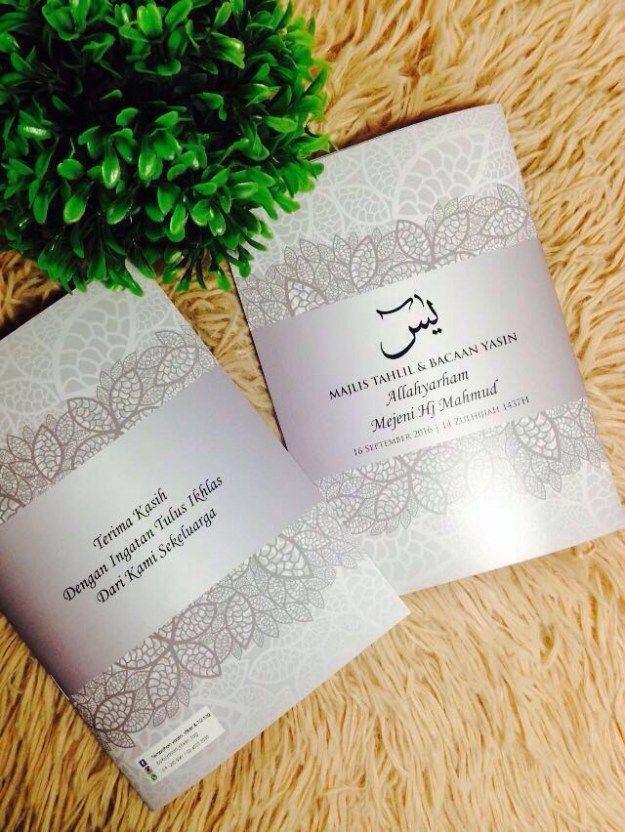 يس
MAJLIS TAHLIL & BACAAN YASIN
Allahyarham
Mejeni Hj Mahmud
16 SEPTEMBER 2016 | 14 ZULHIJJAH 1437H
Terima Kasih
Dengan Ingatan Tulus Ikhlas
Dari Kami Sekeluarga